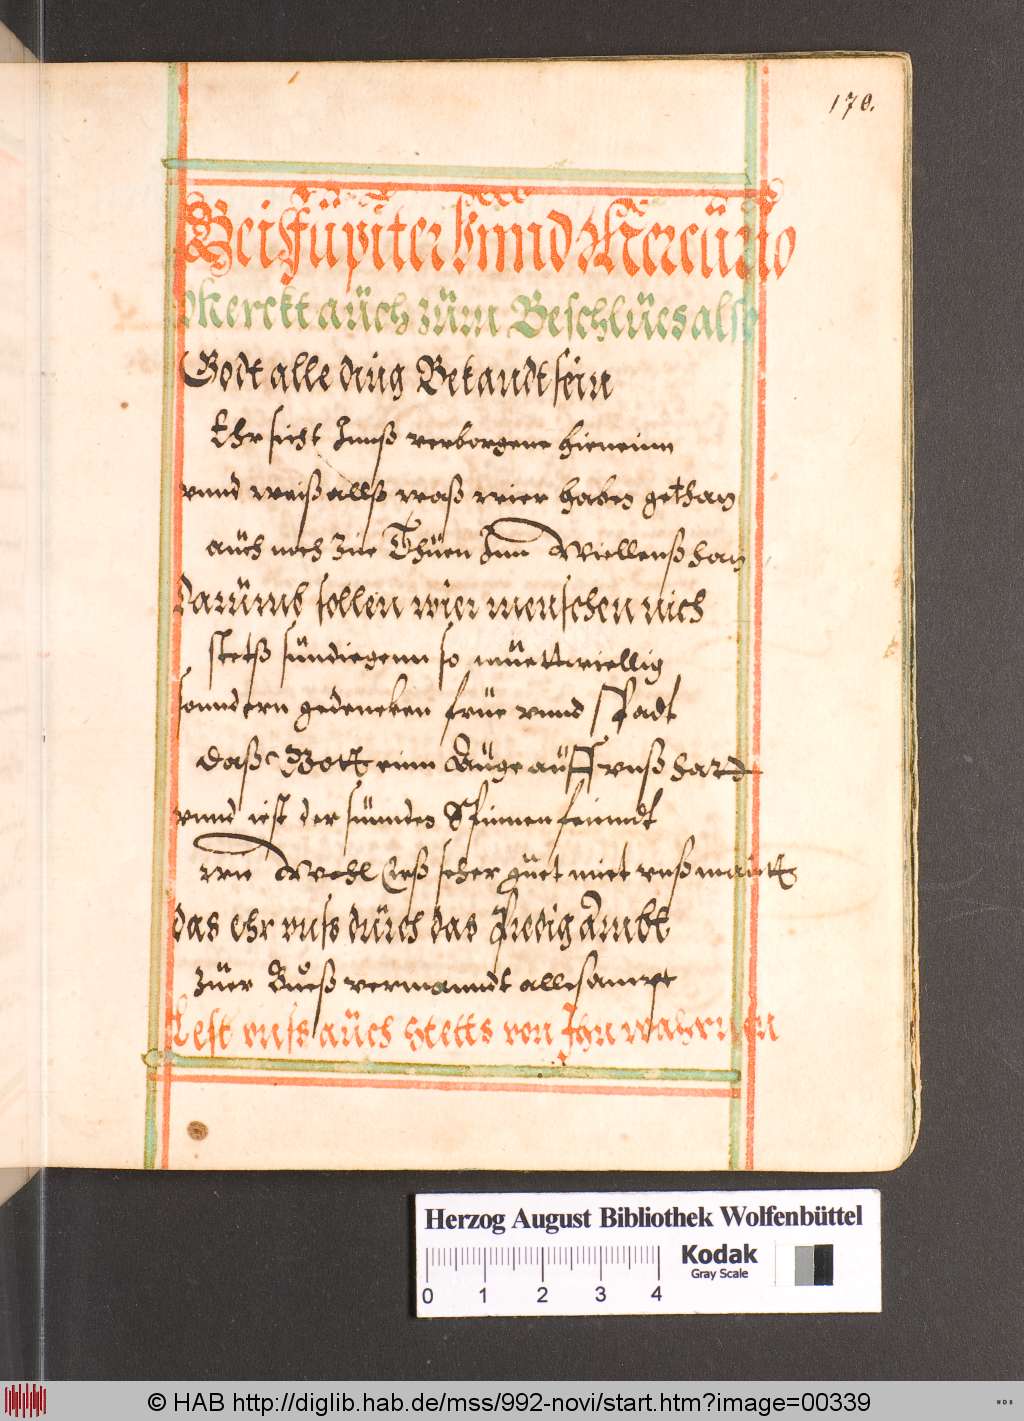 170.
Bei Jüpiter Vnnd Mercürio
Merckt aüch züm Beschlües also
Godt alle ding Bekandt sein
Ehr sicht Innß verborgene hieneinn
vnnd weiß allß waß wier haben gethan
aüch noch züe Thüen Inn Wiellenß han
darümb sollen wier menschen nich
stetß sündiegenn so müettwiellig
sonndern gedencken früe vnnd spadt
daß Gott einn Aüge aüff vnß hatt
vnnd ist der sünnden Spinnenfeinndt
wie Wohl Erß seher güet miet vnß maintt
das ehr vnß dürch das Predig Ambt
züer Büeß vermanndt allesampt
Lest vnß aüch stetts von Ihn wahrnen
Herzog August Bibliothek Wolfenbüttel
Kodak
Gray Scale
0 1 2 3 4
© HAB http://diglib.hab.de/mss/992-novi/start.htm?image=00339